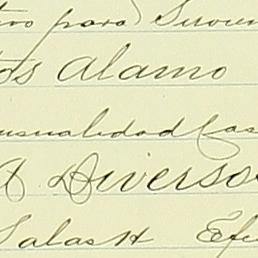 para Suvum
os Alamo
ensualidad Cas
A Diverso
Salas H Efe